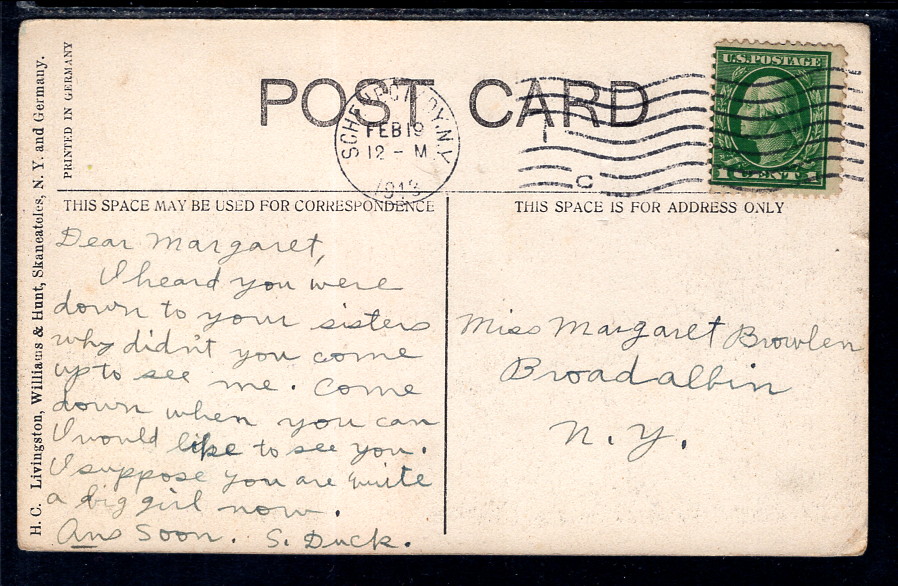 POST CARD
U.S. POSTAGE
1 CENT 1
SCHENECTADY, N.Y.
FEB 19
12 - M
1913
C
H. C. Livingston, Williams & Hunt, Skaneateles, N. Y. and Germany.
PRINTED IN GERMANY
THIS SPACE MAY BE USED FOR CORRESPONDENCE
THIS SPACE IS FOR ADDRESS ONLY
Dear Margaret,
I heard you were
down to your sisters
why didn't you come
up to see me. Come
down when you can
I would like to see you.
I suppose you are quite
a big girl now.
Ans Soon. S. Duck.
Miss Margaret Browlen
Broadalbin
N. Y.